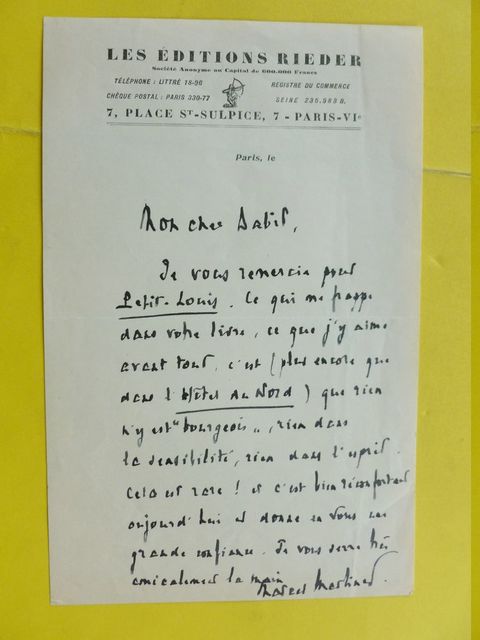 LES ÉDITIONS RIEDER
Société Anonyme au Capital de 600.000 Francs
TÉLÉPHONE : LITTRÉ 18-90
REGISTRE DU COMMERCE
CHÈQUE POSTAL : PARIS 330-77
SEINE 235.983 B.
7, PLACE ST-SULPICE, 7 - PARIS-VIe
Paris, le
Mon cher Dabit,
Je vous remercie pour
Petit-Louis. Ce qui me frappe
dans votre livre, ce que j'y aime
avant tout, c'est (plus encore que
dans l'Hôtel du Nord) que rien
n'y est "bourgeois", rien dans
la sensibilité, rien dans l'esprit.
Cela est rare ! et c'est bien réconfortant
aujourd'hui et donne en vous une
grande confiance. Je vous serre très
amicalement la main
Marcel Martinet.